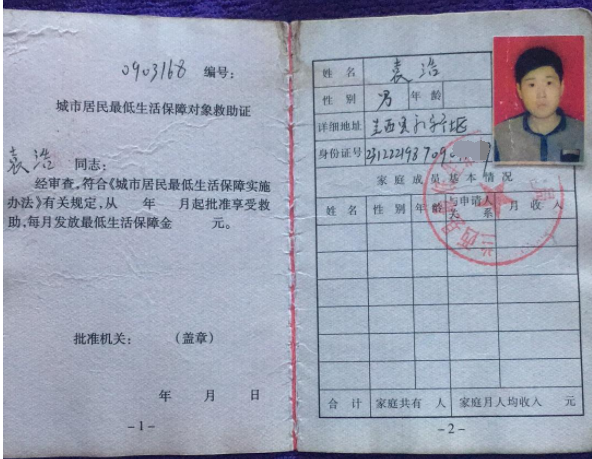 0903168 编号：
城市居民最低生活保障对象救助证
袁浩 同志：
经审查，符合《城市居民最低生活保障实施
办法》有关规定，从 年 月起批准享受救
助，每月发放最低生活保障金 元。
批准机关： （盖章）
年 月 日
－1－
姓名 袁浩
性别 男 年龄
详细地址 兰西县
身份证号
家庭成员基本情况
姓名 性别 年龄 与申请人关系 月收入
合计 家庭共有 人 家庭月人均收入 元
－2－